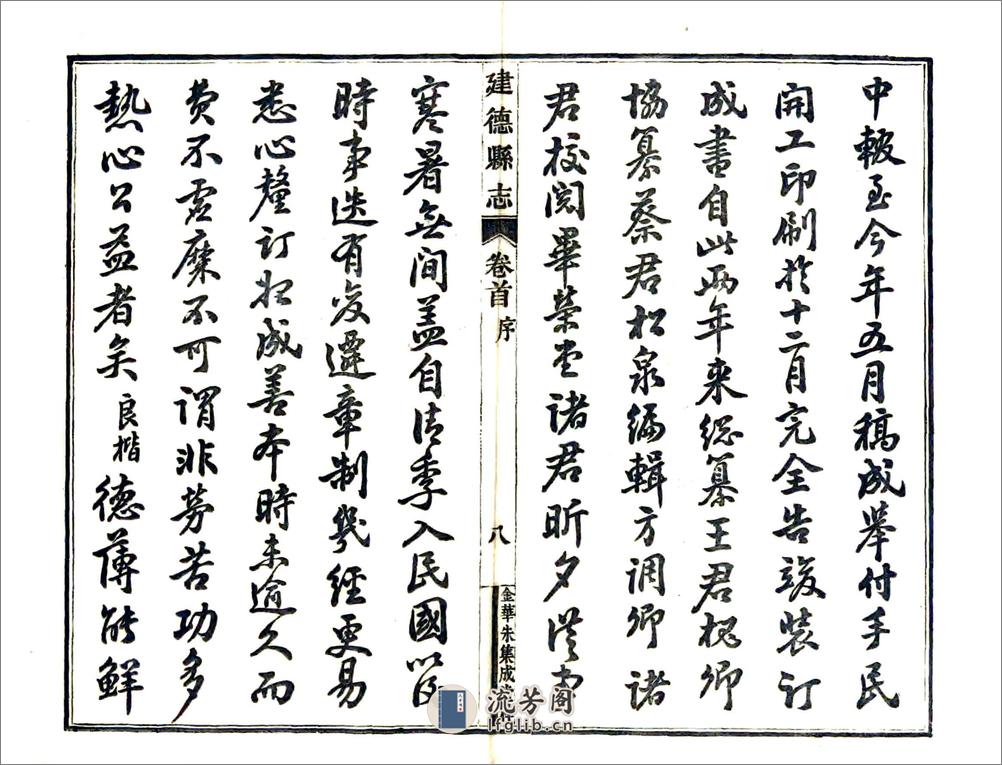 中輟至今年五月稿成舉付手民
開工印刷於十二月完全告竣裝訂
成書自此兩年來總纂王君卿
協纂蔡君松泉編輯方調卿諸
君校閱畢榮堂諸君昕夕從事
建德縣志
卷首 序
八
金華朱集成
寒暑無間蓋自清季入民國以後
時事迭有變遷章制幾經更易
悉心釐訂始成善本時未逾久而
費不虛糜不可謂非勞苦功多
熱心公益者矣良楷德薄能鮮
流芳阁
lfglib.cn